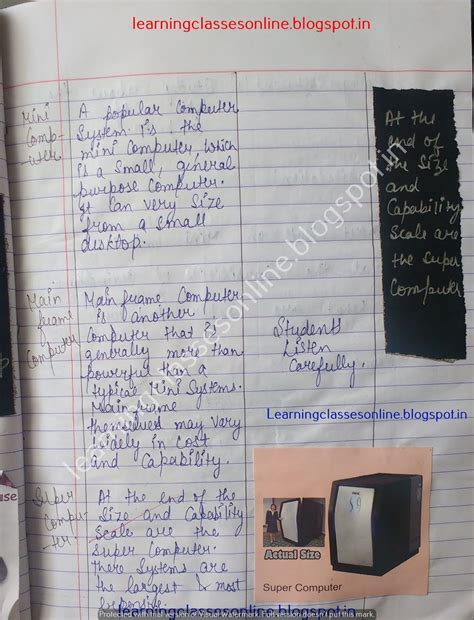 learningclassesonline.blogspot.in
Mini
Comp-
uter
A popular Computer
System is the
mini Computer which
is a small, general
purpose Computer.
It Can very Size
from a small
desktop.
Main
frame
Computer
Mainframe Computer
is another
Computer that is
generally more than
powerful than a
typical Mini Systems.
Mainframe
themselves may vary
widely in Cost
and Capability.
Students
Listen
Carefully.
At the
end of
the Size
and
Capability
Scale are
the Super
Computer
Learningclassesonline.blogspot.in
learningclassesonline.blogspot.in
use
Super
Compu-
ter
At the end of the
Size and Capability
Scale are the
Super Computer.
There Systems are
the largest & most
Expensive.
Actual Size
Super Computer
learningclassesonline.blogspot.in
Protected with trial version of Visual Watermark. Full version doesn't put this mark.